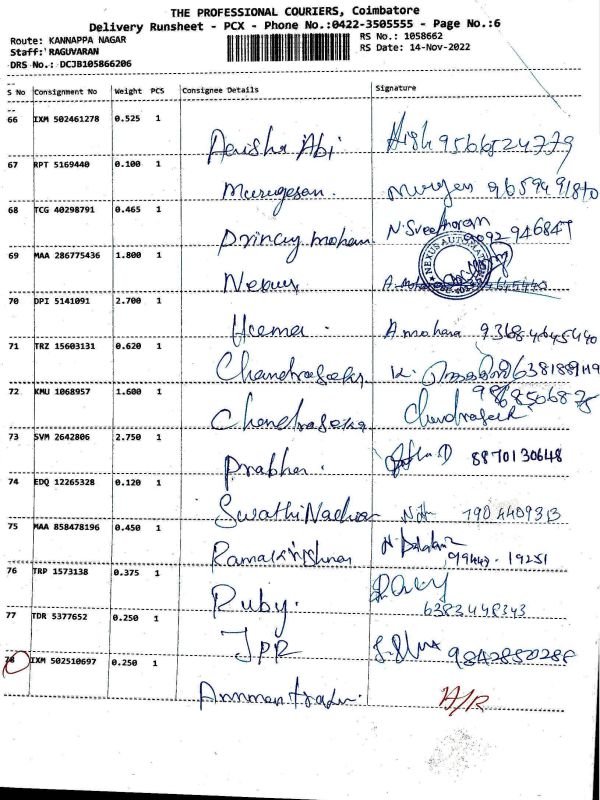 THE PROFESSIONAL COURIERS, Coimbatore
Delivery Runsheet - PCX - Phone No.:0422-3505555 - Page No.:6
Route: KANNAPPA NAGAR RS No.: 1058662
Staff: RAGUVARAN RS Date: 14-Nov-2022
DRS No.: DCJB105866206
S No Consignment No Weight PCS Consignee Details Signature
66 IXM 502461278 0.525 1
Aaisha Abi
67 RPT 5169440 0.100 1
Murugesan. Murugan
68 TCG 40298791 0.465 1
N. Sreedharan
69 MAA 286775436 1.800 1
NEXUS AUTOMATION
70 DPI 5141091 2.700 1
Heema. A mohana
71 TRZ 15603131 0.620 1
Chandrasekar K.
72 KMU 1068957 1.600 1
Chandrasekar
73 SVM 2642806 2.750 1
Prabha. 8870130648
74 EDQ 12265328 0.120 1
Swathi 7904409313
75 MAA 858478196 0.450 1
Ramakrishnan 99443-19251
76 TRP 1573138 0.375 1
Ruby. Ruby
6383448343
77 TDR 5377652 0.250 1
JPR 9842850288
78 IXM 502510697 0.250 1
Amman traders. A/R